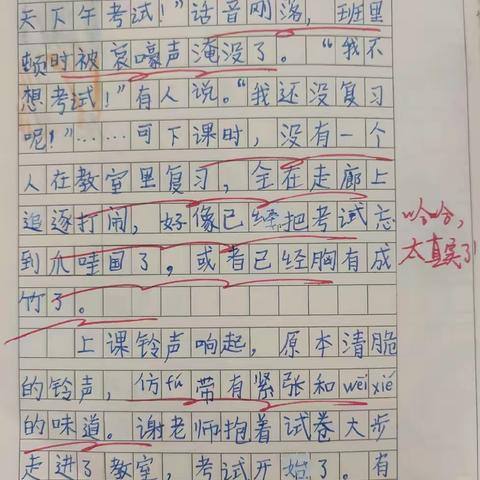 天下午考试!”话音刚落，班里
顿时被哀嚎声淹没了。“我不
想考试!”有人说。“我还没复习
呢!”……可下课时，没有一个
人在教室里复习，全在走廊上
追逐打闹，好像已经把考试忘
到爪哇国了，或者已经胸有成
竹了。
哈哈，
太真实了!
上课铃声响起，原本清脆
的铃声，仿fú带有紧张和wēi xié
的味道。谢老师抱着试卷大步
走进了教室，考试开始了。有